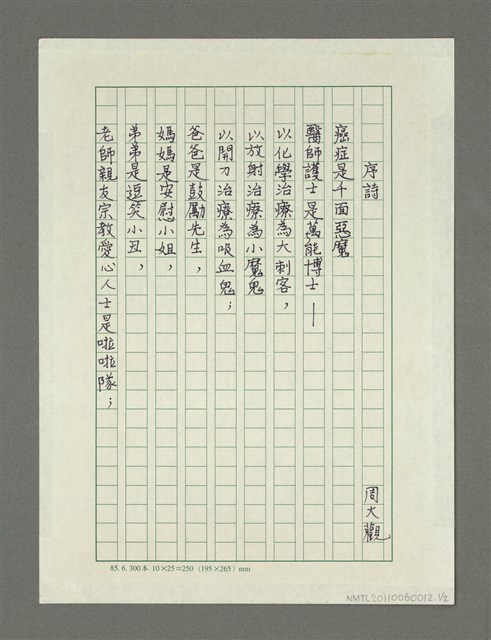 序詩
周大觀
癌症是千面惡魔
醫師護士是萬能博士——
以化學治療為大刺客，
以放射治療為小魔鬼
以開刀治療為吸血鬼；
爸爸是鼓勵先生，
媽媽是安慰小姐，
弟弟是逗笑小丑，
老師親友宗教愛心人士是啦啦隊；
85. 6. 300本 10×25=250 (195×265) mm
NMTL20110060012-1/2